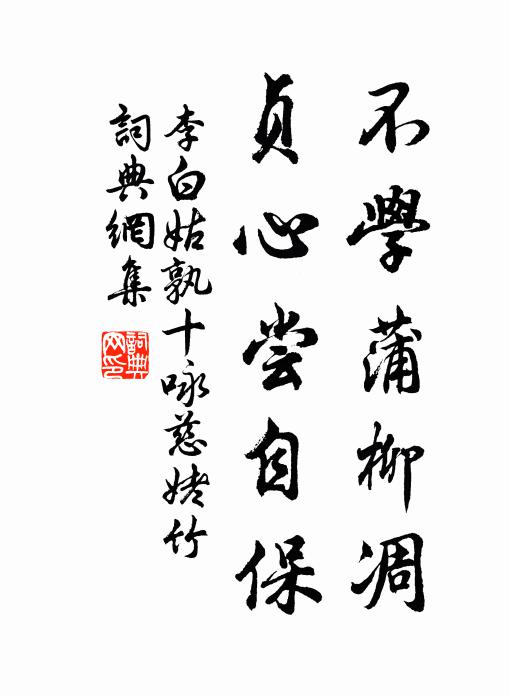 不學蒲柳凋
貞心尝自保
李白姑孰十咏慈姥竹
詞典網集
詞典網印